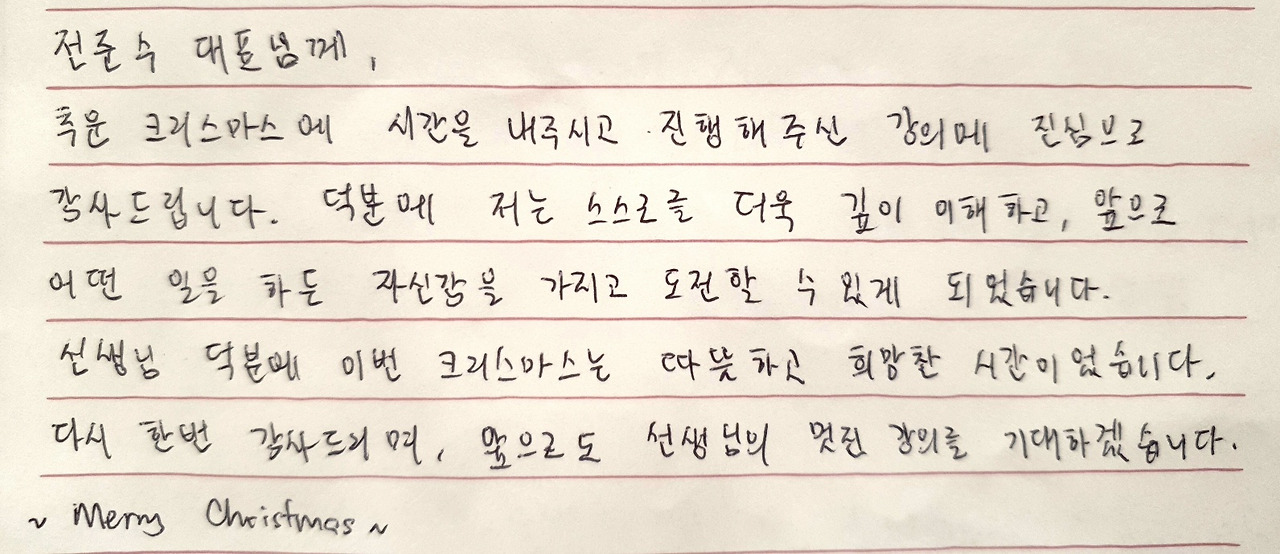 전준수 대표님께,
추운 크리스마스에 시간을 내주시고 진행해주신 강의에 진심으로
감사드립니다. 덕분에 저는 스스로를 더욱 깊이 이해하고, 앞으로
어떤 일을 하든 자신감을 가지고 도전할 수 있게 되었습니다.
선생님 덕분에 이번 크리스마스는 따뜻하고 희망찬 시간이었습니다.
다시 한번 감사드리며, 앞으로도 선생님의 멋진 강의를 기대하겠습니다.
~ Merry Christmas ~